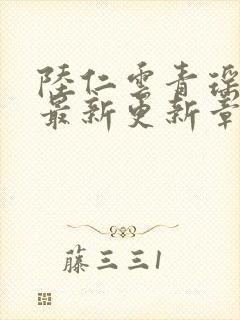 陸仁雲青瑶
最新更新章
藤三三1